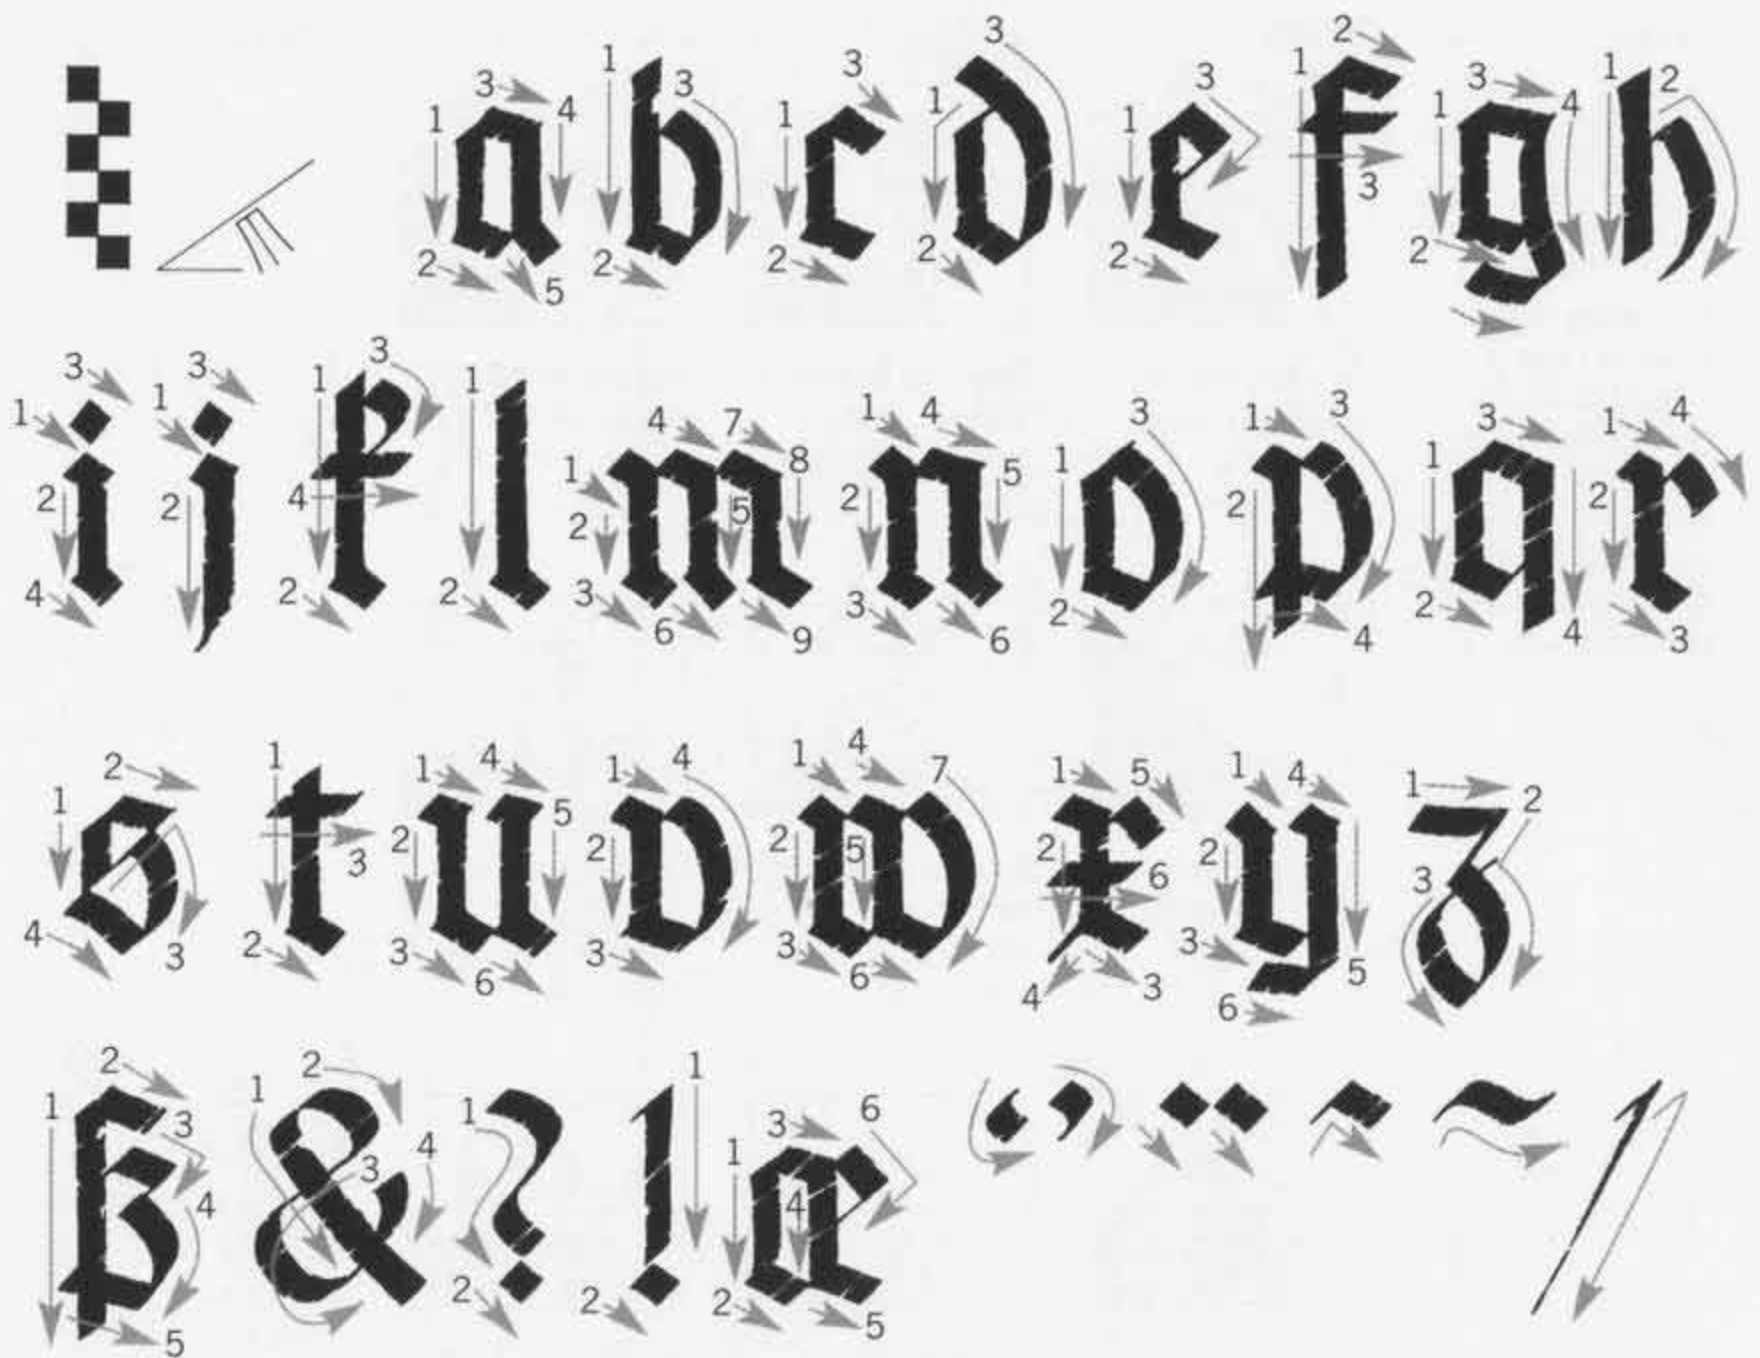 a b c d e f g h
i j k l m n o p q r
s t u v w x y z
ß & ? ! æ ‘ ’ ¨ ^ ~ /